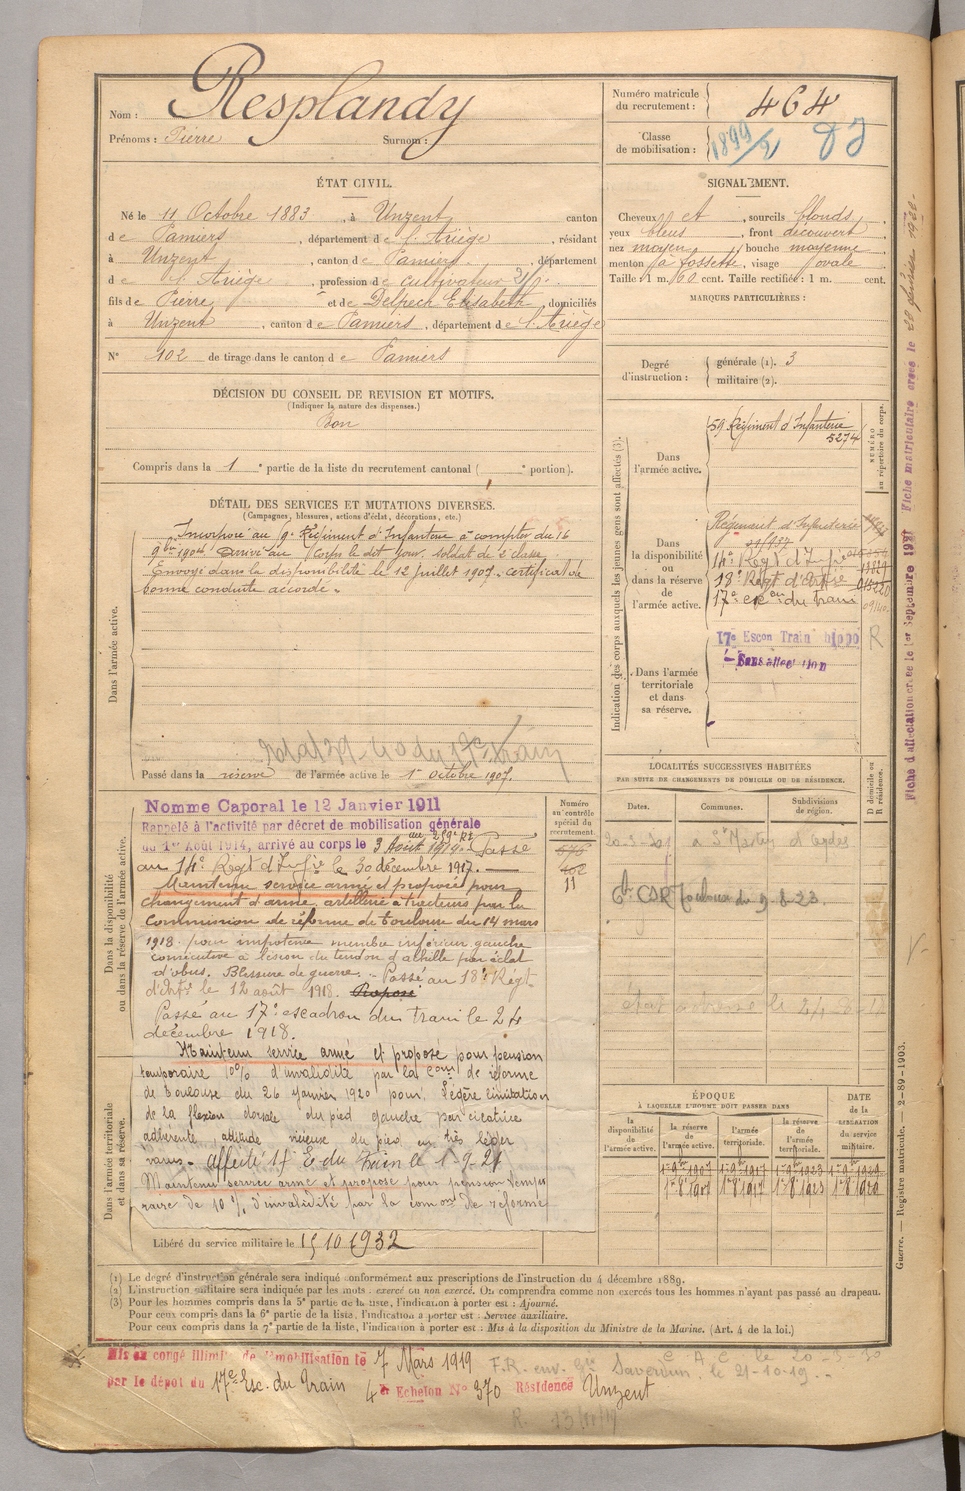 Nom : Resplandy
Prénoms : Pierre Surnom :
ÉTAT CIVIL.
Né le 11 Octobre 1883, à Unzent, canton
de Pamiers, département de l'Ariège, résidant
à Unzent, canton de Pamiers, département
de l'Ariège, profession de cultivateur
fils de Pierre et de Delpech Elisabeth, domiciliés
à Unzent, canton de Pamiers, département de l'Ariège
N° 102 de tirage dans le canton de Pamiers
DÉCISION DU CONSEIL DE REVISION ET MOTIFS.
(Indiquer la nature des dispenses.)
Bon
Compris dans la 1e partie de la liste du recrutement cantonal ( e portion).
DÉTAIL DES SERVICES ET MUTATIONS DIVERSES.
(Campagnes, blessures, actions d'éclat, décorations, etc.)
Dans l'armée active.
Incorporé au 59e Régiment d'Infanterie à compter du 16
9bre 1904. Arrivé au Corps le dit jour. Soldat de 2e classe.
Envoyé dans la disponibilité le 12 Juillet 1907. Certificat de
bonne conduite accordé.
Passé dans la réserve de l'armée active le 1er Octobre 1907.
Dans la disponibilité
ou dans la réserve de l'armée active.
Nomme Caporal le 12 Janvier 1911
Rappelé à l'activité par décret de mobilisation générale
du 1er Août 1914, arrivé au corps le 3 Août 1914. Passé
au 14e Régt d'Infie le 30 décembre 1917.
Maintenu service armé et proposé pour
changement d'arme, artillerie à tracteurs par la
Commission de réforme de Toulouse du 14 mars
1918 pour impotence membre inférieur gauche
consécutive à lésion du tendon d'achille par éclat
d'obus. Blessure de guerre. Passé au 18e Régt
d'Artie le 12 août 1918. Proposé
Passé au 17e escadron du train le 24
décembre 1918.
Dans l'armée territoriale
et dans sa réserve.
Maintenu service armé et proposé pour pension
temporaire 10% d'invalidité par la Comm de réforme
de Toulouse du 26 Janvier 1920 pour : Légère limitation
de la flexion dorsale du pied gauche par cicatrice
adhérente, attitude vicieuse du pied en très léger
varus. Affecté 17 E. du Train le 1-9-21
Maintenu service armé et proposé pour pension tempo
raire de 10 % d'invalidité par la comon de réforme
Libéré du service militaire le 15 10 1932
Numéro
au contrôle
spécial du
recrutement
11
Numéro matricule
du recrutement : 464
Classe
de mobilisation : 1899
SIGNALEMENT.
Cheveux et, sourcils blonds,
yeux bleus, front découvert,
nez moyen, bouche moyenne
menton à fossette, visage ovale
Taille : 1 m. 60 cent. Taille rectifiée : 1 m. cent.
MARQUES PARTICULIÈRES :
Degré
d'instruction :
générale (1). 3
militaire (2).
Indication des corps auxquels les jeunes gens sont affectés (3).
NUMÉRO
au répertoire du corps.
Dans
l'armée active.
59 Régiment d'Infanterie
5274
Dans
la disponibilité
ou
dans la réserve
de
l'armée active.
Régiment d'Infanterie
14e Régt d'Infie
18e Régt d'Artie
17e esc on du train
Dans l'armée
territoriale
et dans
sa réserve.
17e Escon Train hippo R
Sans affectation
LOCALITÉS SUCCESSIVES HABITÉES
PAR SUITE DE CHANGEMENTS DE DOMICILE OU DE RÉSIDENCE.
Dates. Communes. Subdivisions
de région.
D domicile ou
R résidence.
CSR Toulouse du 9-8-23
ÉPOQUE
À LAQUELLE L'HOMME DOIT PASSER DANS
la
disponibilité
de
l'armée active.
la réserve
de
l'armée active.
l'armée
territoriale.
la réserve
de
l'armée
territoriale.
DATE
de la
LIBÉRATION
du service
militaire.
1er 8 1907 1er 8 1917 1er 8 1923 1er 8 1929
Fiche d'affectation créée le 1er Septembre 1921 Fiche matriculaire créée le 28 février 1928
Guerre. — Registre matricule. — 2-89-1903.
(1) Le degré d'instruction générale sera indiqué conformément aux prescriptions de l'instruction du 4 décembre 1889.
(2) L'instruction militaire sera indiquée par les mots : exercé ou non exercé. On comprendra comme non exercés tous les hommes n'ayant pas passé au drapeau.
(3) Pour les hommes compris dans la 5e partie de la liste, l'indication à porter est : Ajourné.
Pour ceux compris dans la 6e partie de la liste, l'indication à porter est : Service auxiliaire.
Pour ceux compris dans la 7e partie de la liste, l'indication à porter est : Mis à la disposition du Ministre de la Marine. (Art. 4 de la loi.)
Mis en congé illimité de démobilisation le 7 Mars 1919
par le dépôt du 17e Esc. du Train 4e Echelon N° 370 Résidence Unzent
F.R. env. Gie Saverdun le 21-10-19